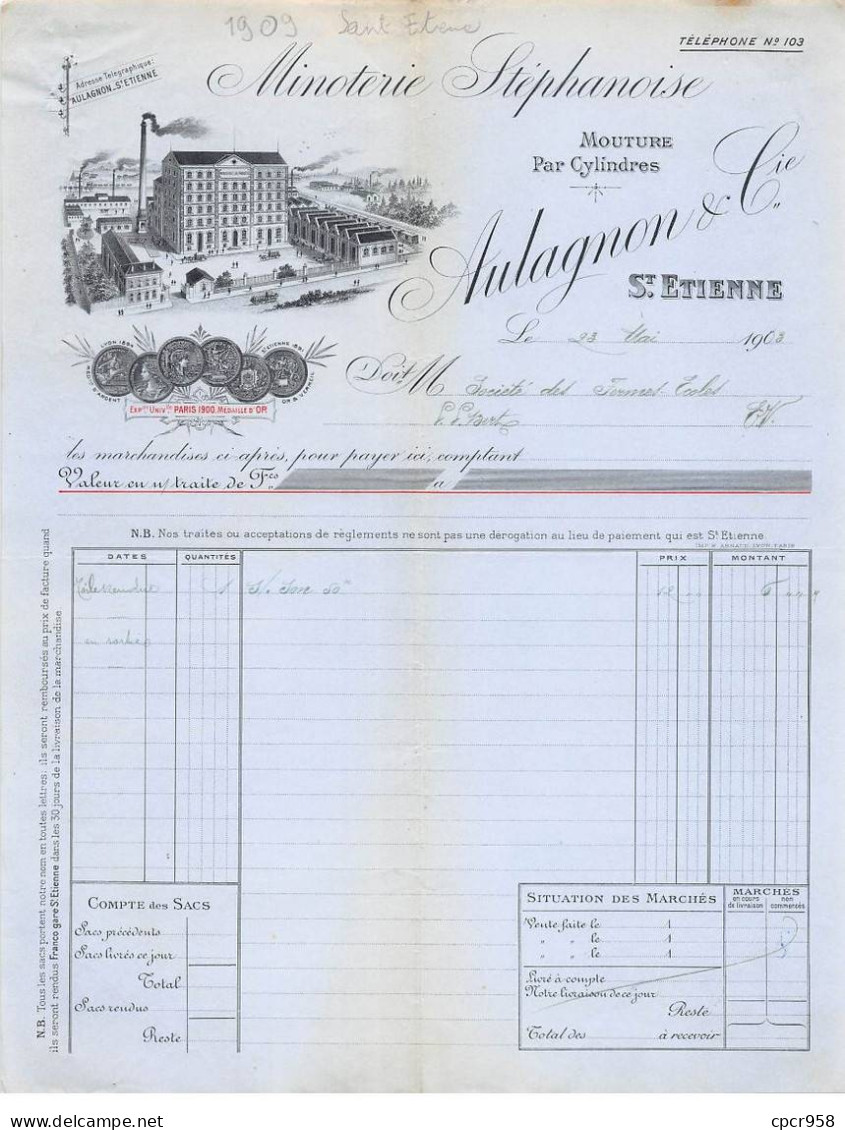 1909 Saint Etiene
TÉLÉPHONE No 103
Adresse Télégraphique:
AULAGNON_ST ETIENNE
Minoterie Stéphanoise
MOUTURE
PAR CYLINDRES
Aulagnon & Cie
ST ETIENNE
Le 23 Mai 1903
LYON 1894
MEDLE D'ARGENT
ST ETIENNE 1891
OR & VERMEIL
EXPON UNIVLLE PARIS 1900. MÉDAILLE D'OR
Doit M Société des
E.V.
les marchandises ci-après, pour payer ici, comptant
Valeur en n/ traite de Fcs a
N.B. Nos traites ou acceptations de règlements ne sont pas une dérogation au lieu de paiement qui est St Etienne
DATES QUANTITÉS PRIX MONTANT
1
N.B. Tous les sacs portent notre nom en toutes lettres; ils seront remboursés au prix de facture quand
ils seront rendus Franco gare St Etienne dans les 30 jours de la livraison de la marchandise
COMPTE des SACS
Sacs précédents
Sacs livrés ce jour
Total
Sacs rendus
Reste
SITUATION DES MARCHÉS
MARCHÉS
en cours de livraison
non commencés
Vente faite le 1
" " le 1
" " le 1
Livré à compte
Notre livraison de ce jour
Reste
Total des à recevoir
cpcr958